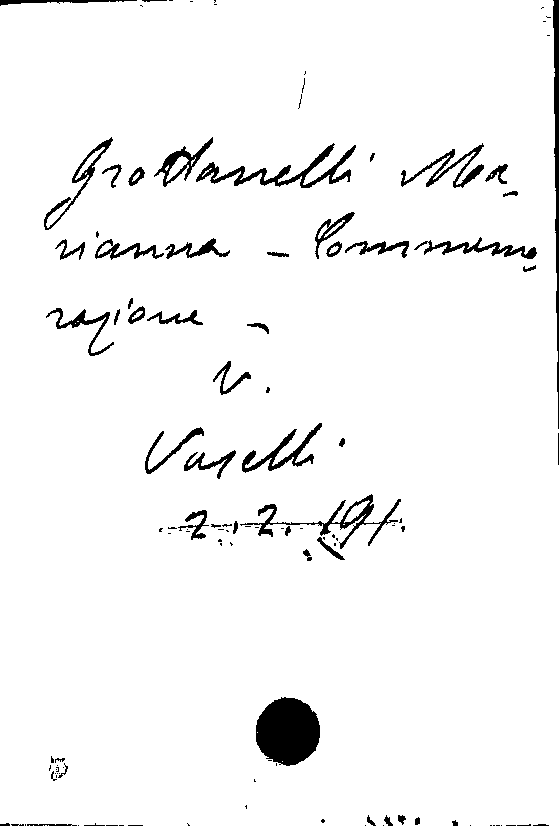 Grottanelli Ma-
rianna - Commemo-
razione -
V.
Vaselli
2. 2. 191.